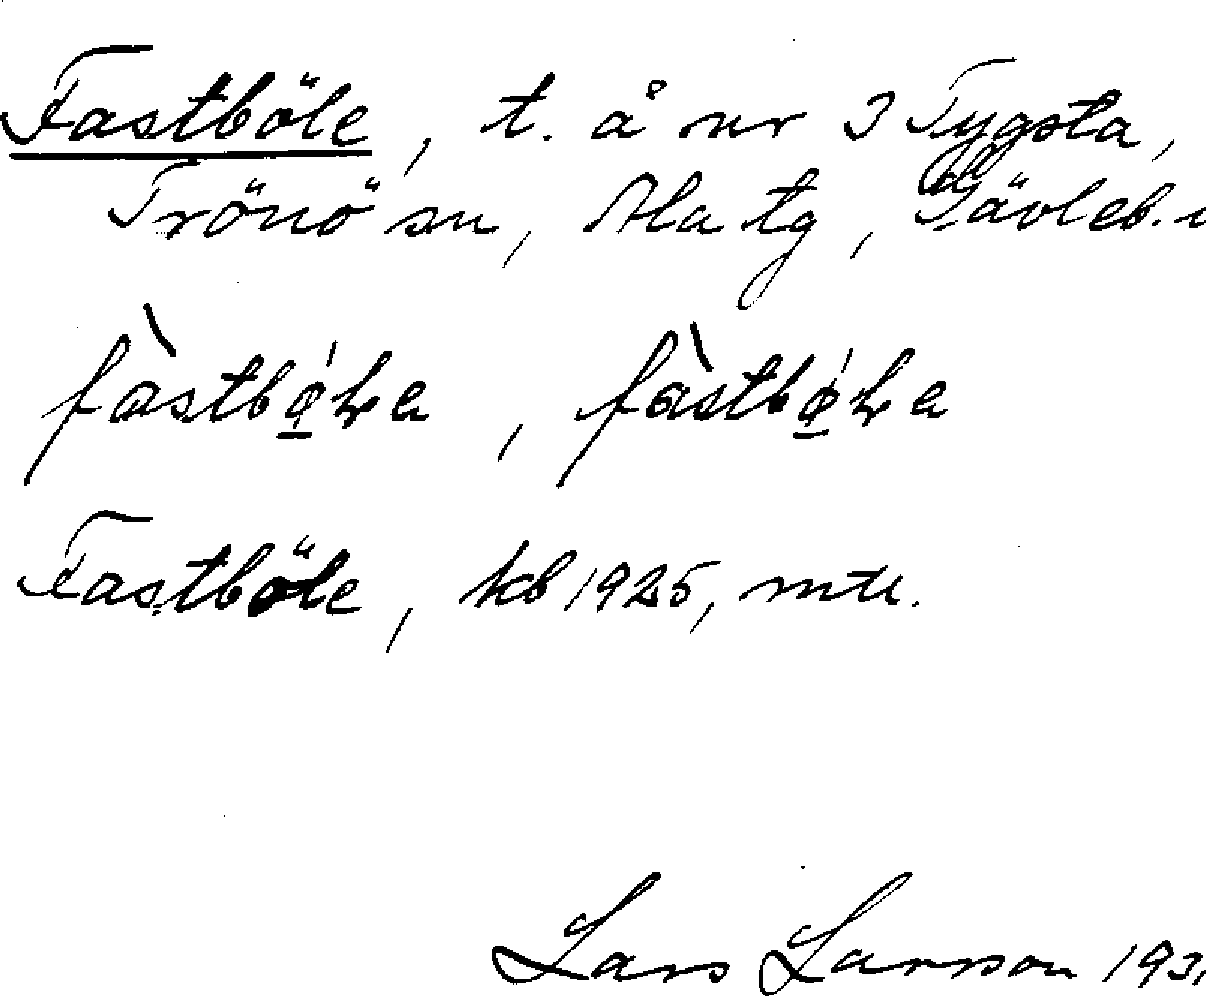 Fastböle, t. å nr 3 Tygsta,
Trönö sn, Ala tg, Gävleb. l
fàstbǿ̱ɫa, fàstbǿ̱ɫa
Fastböle, kb 1925, mtl.
Lars Larsson 193